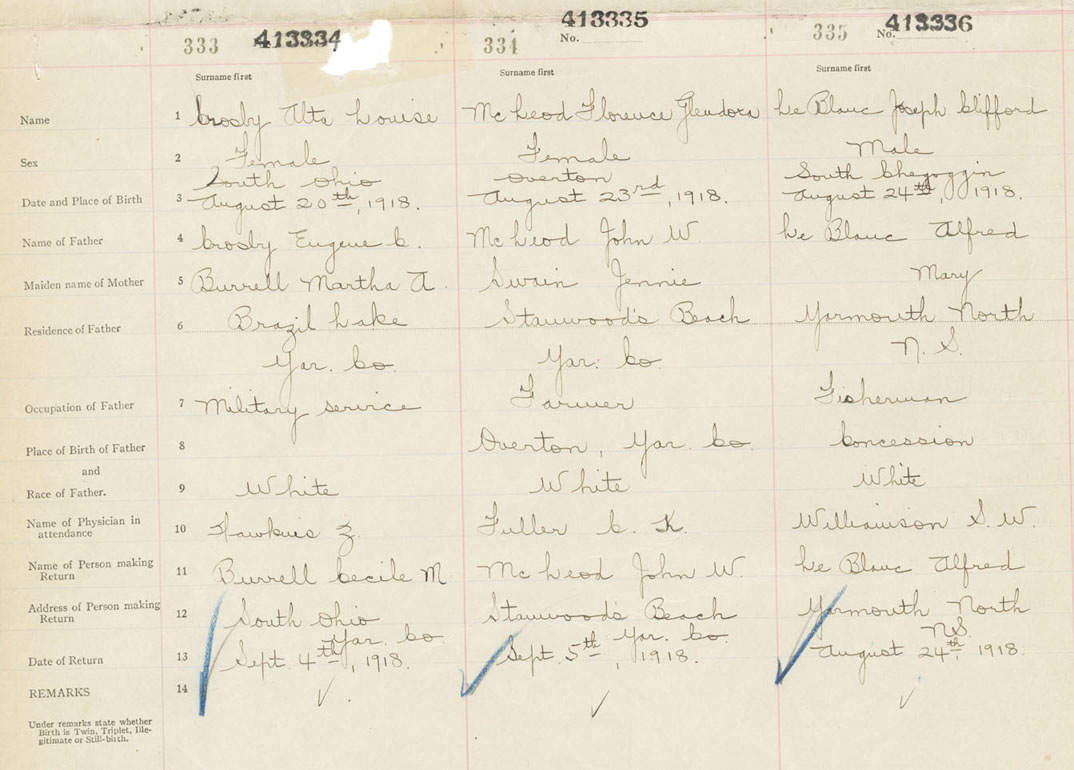 333 413334
334 413335
No.
335 413336
No.
Surname first
Surname first
Surname first
Name 1 Crosby Alta Louise McLeod Florence Glendora Le Blanc Joseph Clifford
Sex 2 Female Female Male
South Ohio Overton South Chegoggin
Date and Place of Birth 3 August 20th, 1918. August 23rd, 1918. August 24th, 1918.
Name of Father 4 Crosby Eugene C. McLeod John W. Le Blanc Alfred
Maiden name of Mother 5 Burrell Martha A. Swain Jennie Mary
Residence of Father 6 Brazil Lake Stanwood's Beach Yarmouth North
Yar. Co. Yar. Co. N. S.
Occupation of Father 7 Military service Farmer Fisherman
Place of Birth of Father 8 Overton, Yar. Co. Concession
and
Race of Father. 9 White White White
Name of Physician in
attendance 10 Hawkins Z. Fuller C. K. Williamson S. W.
Name of Person making
Return 11 Burrell Cecile M. McLeod John W. Le Blanc Alfred
Address of Person making
Return 12 South Ohio Stanwood's Beach Yarmouth North
Yar. Co. Yar. Co. N.S.
Date of Return 13 Sept. 4th, 1918. Sept. 5th, 1918. August 24th, 1918.
REMARKS 14
Under remarks state whether
Birth is Twin, Triplet, Ille-
gitimate or Still-birth.